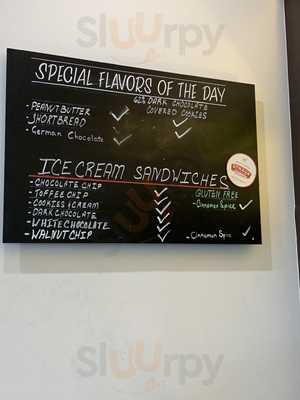 Sluurpy
SPECIAL FLAVORS OF THE DAY
- PEANUT BUTTER
- SHORTBREAD
- German Chocolate
62% DARK CHOCOLATE
COVERED COOKIES
ICE CREAM SANDWICHES
- CHOCOLATE CHIP
- TOFFEE CHIP
- COOKIES & CREAM
- DARK CHOCOLATE
- WHITE CHOCOLATE
- WALNUT CHIP
GLUTEN FREE
- Cinnamon Spice
- Cinnamon Spice
Sluurpy